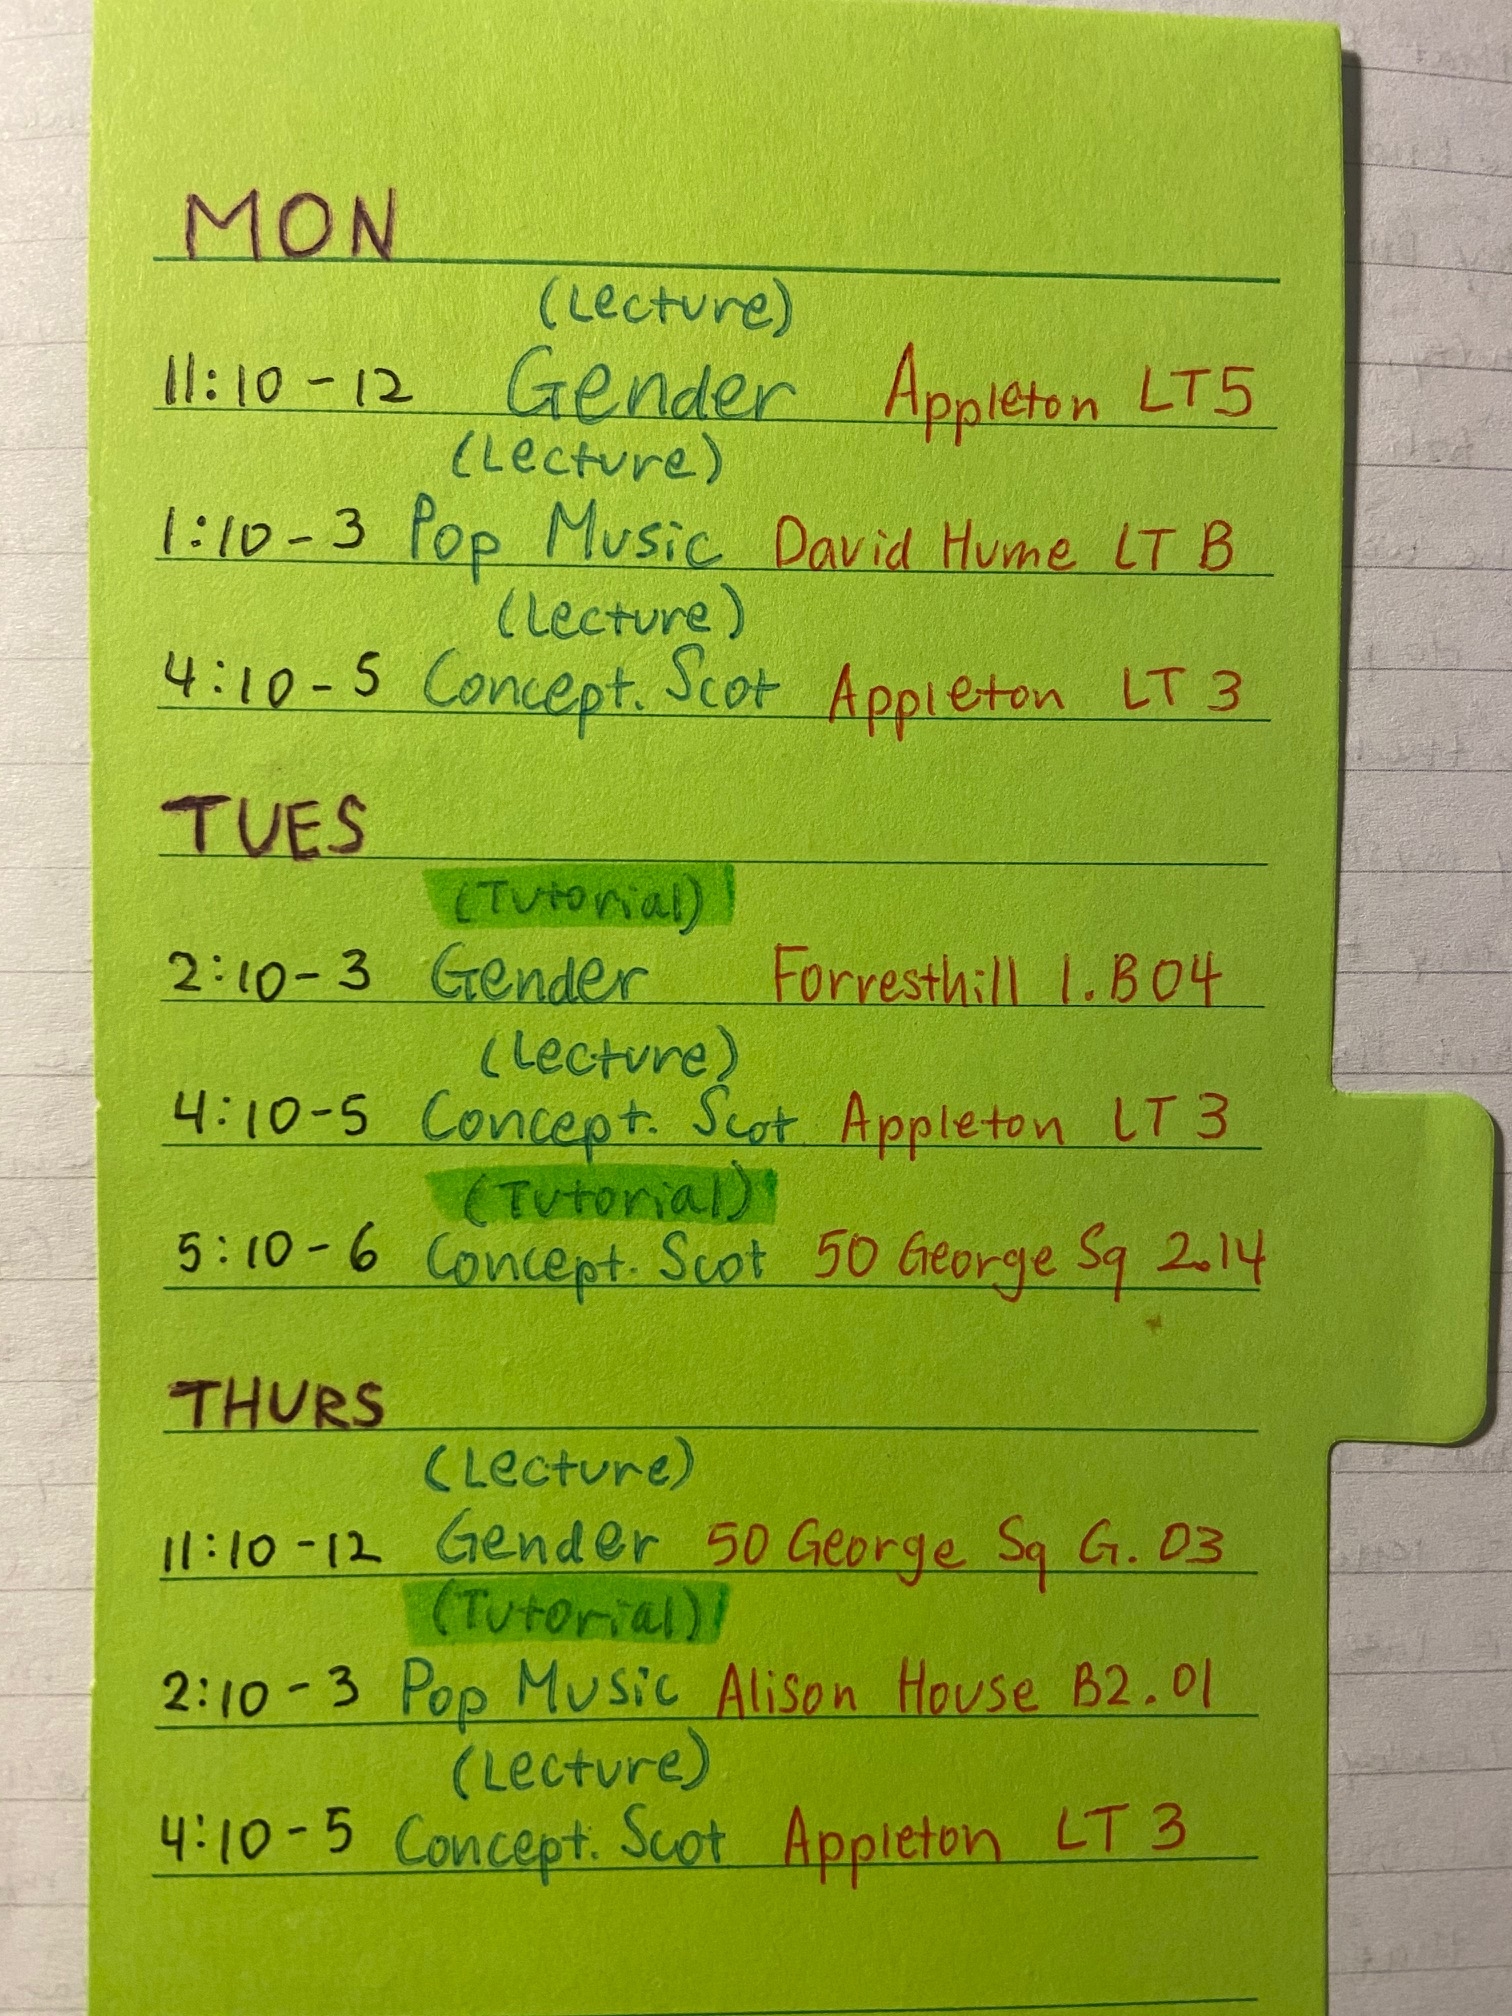 MON
(Lecture)
11:10-12 Gender Appleton LT5
(Lecture)
1:10-3 Pop Music David Hume LT B
(Lecture)
4:10-5 Concept. Scot Appleton LT 3
TUES
(Tutorial)
2:10-3 Gender Forresthill 1.B04
(Lecture)
4:10-5 Concept. Scot Appleton LT 3
(Tutorial)
5:10-6 Concept. Scot 50 George Sq 2.14
THURS
(Lecture)
11:10-12 Gender 50 George Sq G.03
(Tutorial)
2:10-3 Pop Music Alison House B2.01
(Lecture)
4:10-5 Concept. Scot Appleton LT 3